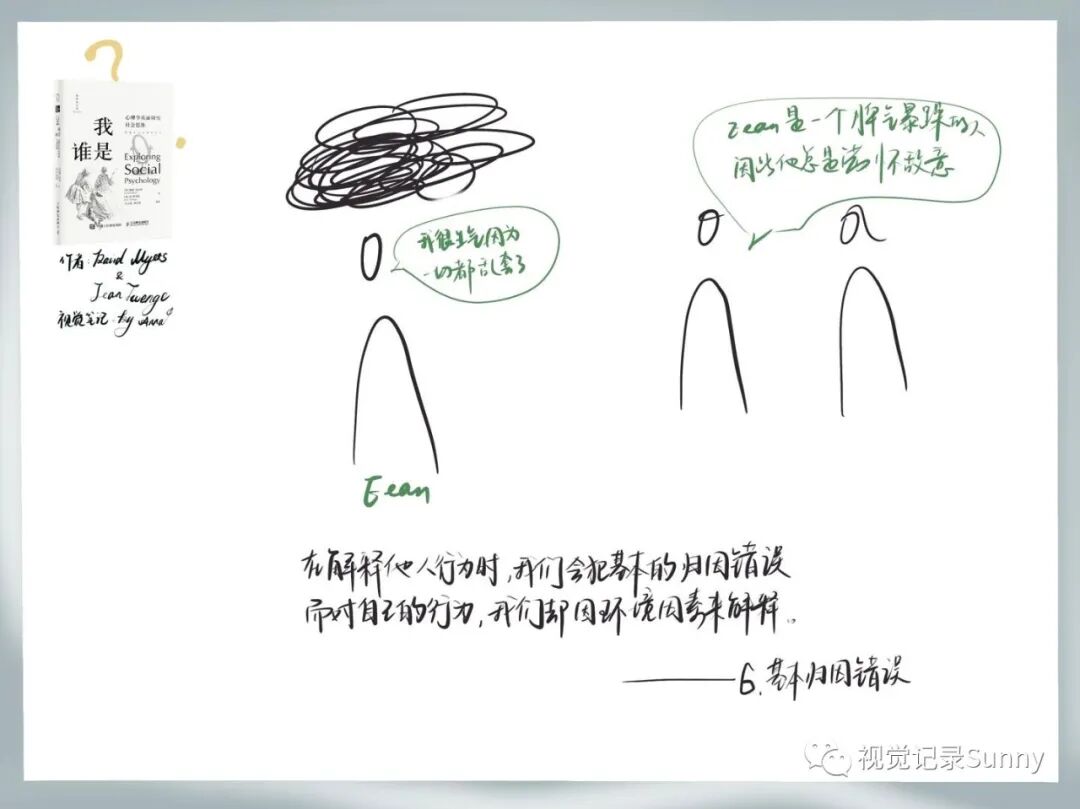 我
谁是
心理学真面目与
社会思维
Exploring
Social
Psychology
作者: David Myers
&
Jean Twenge
视觉笔记: by Anna
我很生气因为
一切都乱套了
Eean
Eean是一个脾气暴躁的人
因此他总是满怀敌意
在解释他人行为时,我们会犯基本的归因错误
而对自己的行为,我们却因环境因素来解释。
——6.基本归因错误
视觉记录Sunny